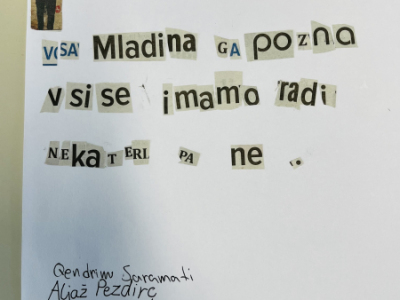 VSA Mladina GA pozna
vsi se imamo radi
NEkaTERI PA ne.
Qendrim Saramati
Aljaž Pezdirc